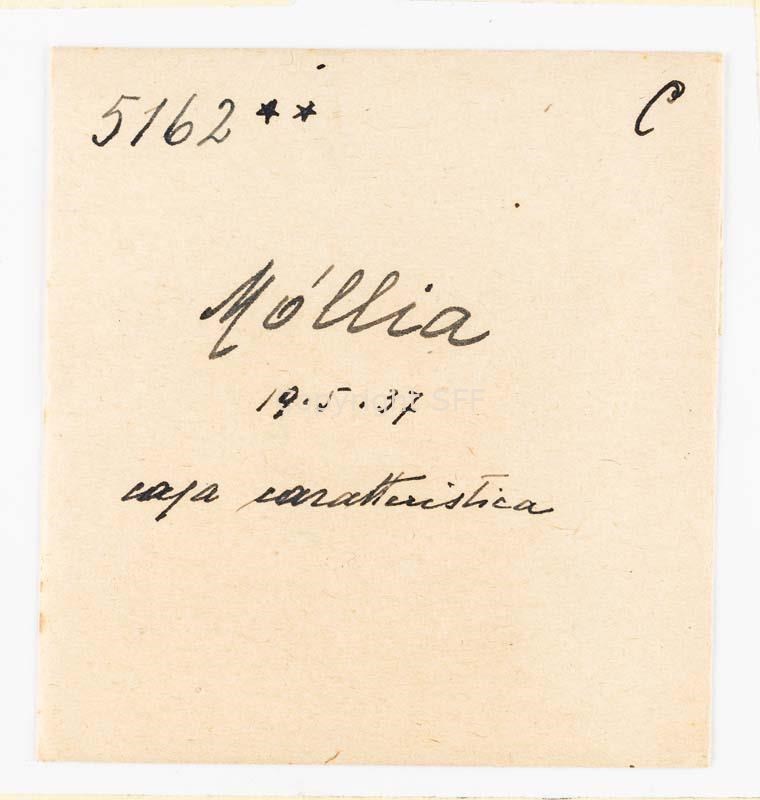 5162** C
Móllia
19.5.37
casa caratteristica